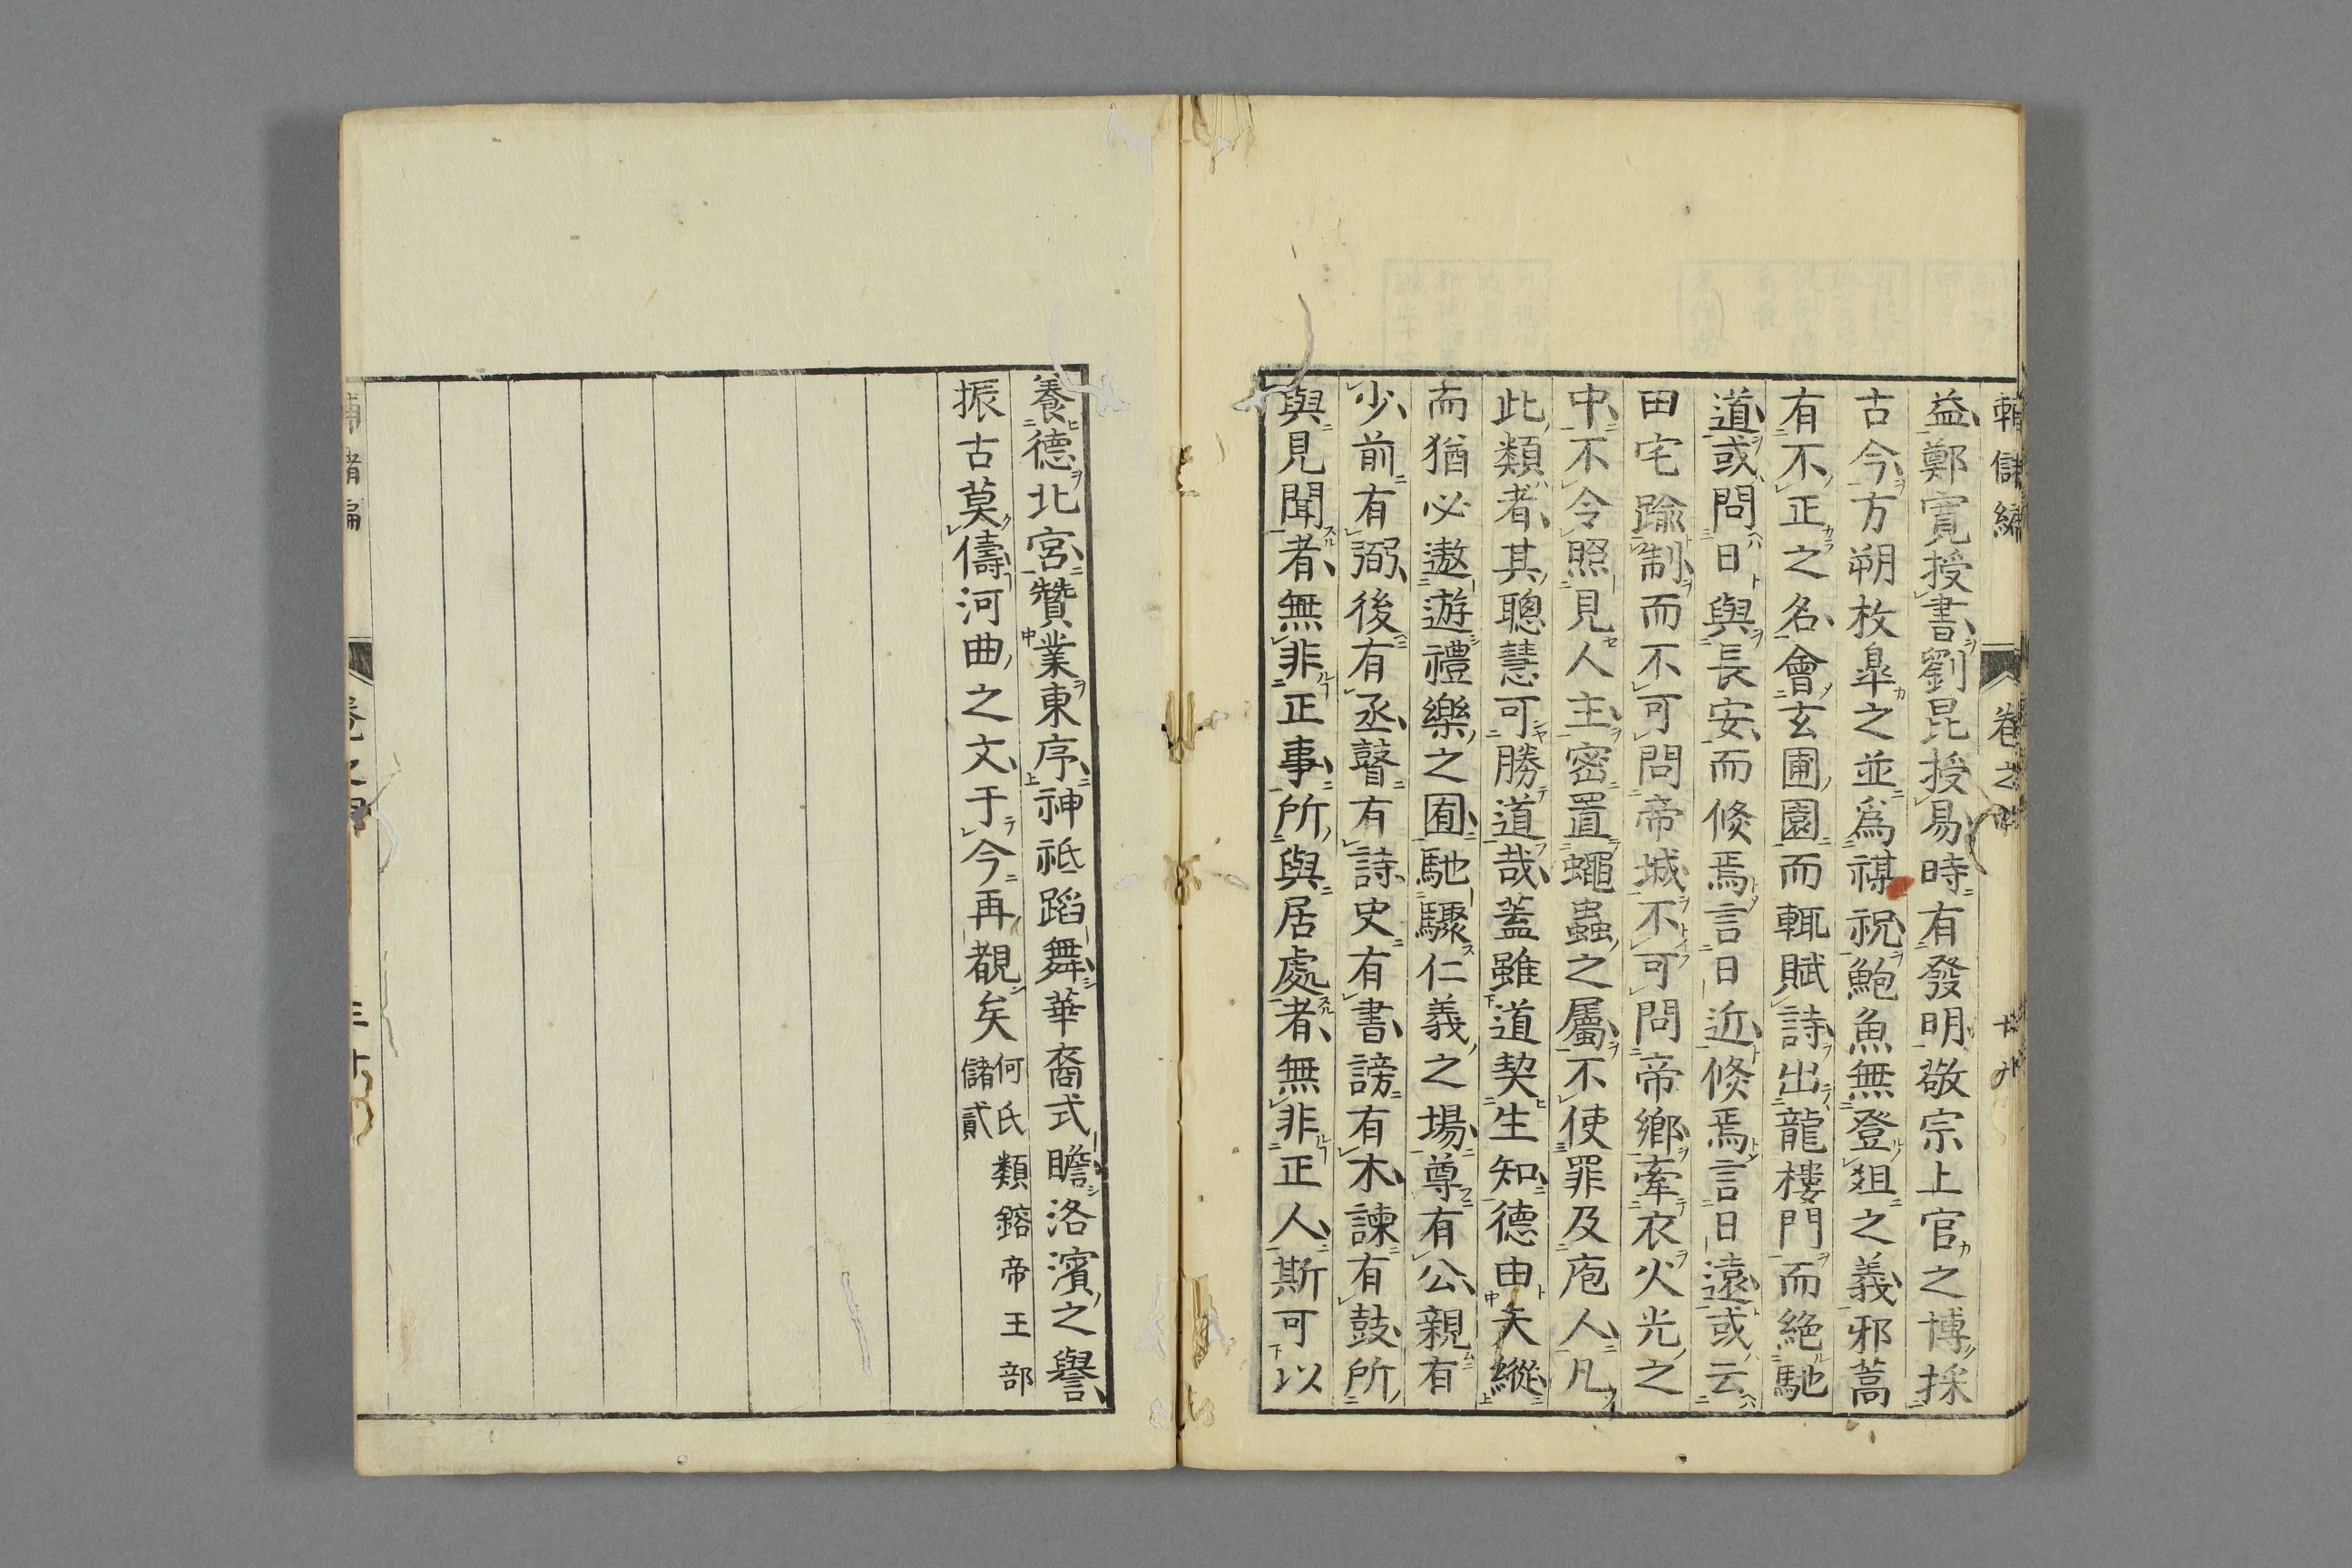 輔儲編 卷之
益鄭寬授書劉昆授易時有發明敬宗上官之博採
古今方朔枚皐之並爲禖祝鮑魚無登俎之義邪蒿
有不正之名會玄圃園而輒賦詩出龍樓門而絕馳
道或問日與長安而倐焉言日近倐焉言日遠或云
田宅踰制而不可問帝城不可問帝鄉牽衣火光之
中不令照見人主密置蠅蟲之屬不使罪及庖人凡
此類者其聰慧可勝道哉蓋雖道契生知德由天縱
而猶必遨遊禮樂之囿馳驟仁義之場尊有公親有
少前有弼後有丞瞽有詩史有書謗有木諫有鼓所
與見聞者無非正事所與居處者無非正人斯可以
養德北宮贊業東序神祗蹈舞華裔式瞻洛濱之譽
振古莫儔河曲之文于今再覩矣 何氏類鎔帝王部
儲貳